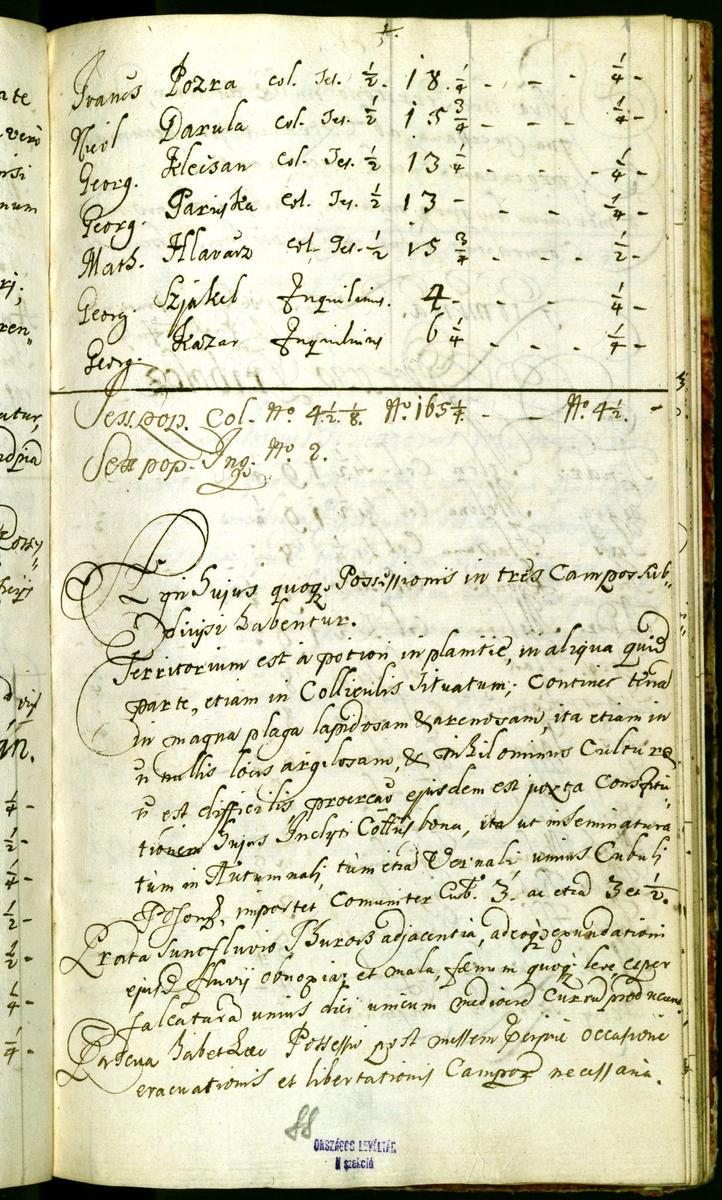 Francs Pozra Col. Ses. 1/2. 18. 1/4 - - - 1/4 -
Nicol Darula Col. Ses. 1/2 15 3/4 - - - 1/4 -
Georg. Kleisan Col. Ses. 1/2 13 1/4 - - - 1/4 -
Georg. Pariska Col. Ses. 1/2 13 - - - 1/4 -
Math. Hlavács Col. Ses. 1/2 15 3/4 - - - 1/2 -
Georg. Szjakel Inquilinus. 4 - - - 1/4 -
Georg. Kazar Inquilinus 6 1/4 - - - 1/4 -
Sess. pop. Col. No. 4 1/2. 1/8. No. 165 1/4. - - No. 4 1/2. -
Sess pop. Inq. No 2.
Agri hujus quoq. Possessionis in tres Campos sub-
divisi habentur.
Territorium est a potiori in planitie, in aliqua quid
parte, etiam in Colliculis situatum; Continet terra
in magna plaga lapidosam & arenosam, ita etiam in
nullis locis argilosam, & nihilominus Cultura
est difficilis, ejusdem est juxta Constitu-
tionem hujus Inclyti Cottus bona, ita ut inseminatura
tum in Autumnali, tum etia Vernali, unius Cubuli
Poson. importet Comuniter Cub. 3. ac etia 3 et 1/2.
Prata sunt fluvio Thurocz adjacentia, adeoq. exundationi
ejusd fluvii obnoxia; et mala, faenum quoq. fere, et per
falcatura unius diei unicum mediocre Curru producunt
Pascua habet haec Possessio post messem occasione
evacuationis et libertationis Campor necessaria.
88
ORSZÁGOS LEVÉLTÁR
II szekció